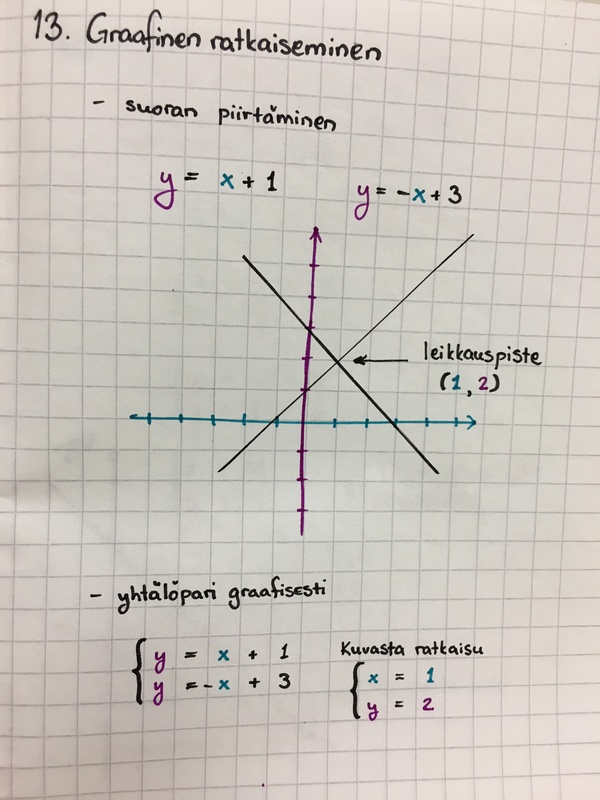 13. Graafinen ratkaiseminen
- suoran piirtäminen
y = x + 1
y = -x + 3
leikkauspiste
(1, 2)
- yhtälöpari graafisesti
y = x + 1
y = -x + 3
Kuvasta ratkaisu
x = 1
y = 2